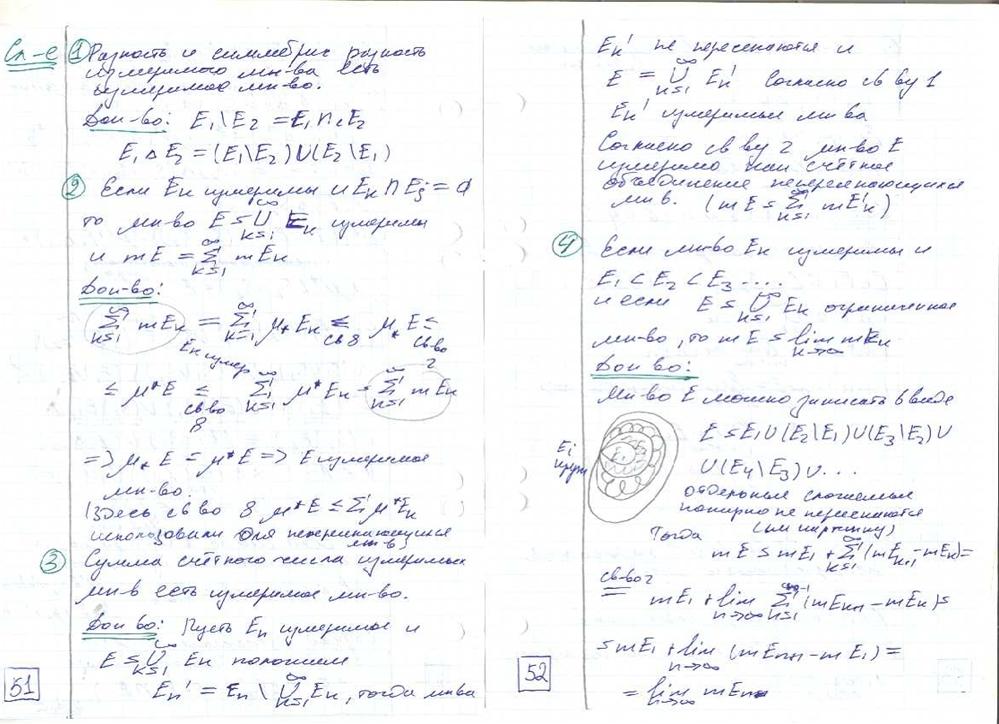 Сл-е ① Разность и симметрич разность
измеримого мн-ва есть
измеримое мн-во.
Док-во: E₁\E₂ = E₁∩cE₂
E₁ △ E₂ = (E₁\E₂)∪(E₂\E₁)
② Если Eк измеримы и Eк ∩ Ej = ∅
то мн-во E = ∞∪k=1 Eк измеримы
и mE = ∞Σk=1 mEк
Док-во:
∞Σk=1 mEк = ∞Σk=1 μ* Eк ≤ μ* E ≤
Eк измер св 8 св-во 2
≤ μ*E ≤ ∞Σk=1 μ*Eк = ∞Σk=1 mEк
св во 8
=> μ* E = μ*E => E измеримое
мн-во.
(Здесь св во 8 μ*E ≤ Σ μ*Eк
использовали для непересекающихся
мн-в)
③ Сумма счётного числа измеримых
мн-в есть измеримое мн-во.
Док во: Пусть Eк измеримое и
E = ∞∪k=1 Eк положим
Eк' = Eк \ ∪k=1 Eк, тогда мн-ва
51
Eк' не пересекаются и
E = ∞∪k=1 Eк' Согласно св ву 1
Eк' измеримые мн ва
Согласно св ву 2 мн-во E
измеримо как счётное
объединение непересекающихся
мн в. (mE = ∞Σk=1 mE'к)
④ Если мн-во Eк измеримы и
E₁ ⊂ E₂ ⊂ E₃ ....
и если E = ∞∪k=1 Eк ограниченное
мн-во, то mE = lim n→∞ mEn
Док во:
Мн-во E можно записать в виде
E = E₁∪(E₂\E₁)∪(E₃\E₂)∪
Ei круги
∪(E₄\E₃)∪...
отдельные слагаемые
попарно не пересекаются
(см картинку)
Тогда
mE = mE₁ + ∞Σk=1 (mEk+1 - mEк) =
св-во 2
mE₁ + lim n→∞ n-1Σk=1 (mEк+1 - mEк) =
= mE₁ + lim n→∞ (mEn+1 - mE₁) =
= lim n→∞ mEn
52